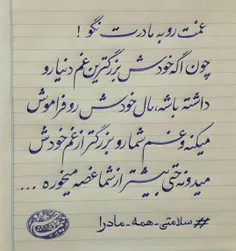 غمت رو به مادرت نگو !
چون اگه خودش بزرگترین غم دنیارو
داشته باشه، مال خودش رو فراموش
میکنه و غم شمارو بزرگتر از غم خودش
میدونه حتی بیشتر از شما غصه میخوره ...
#سلامتی_همه_مادرا